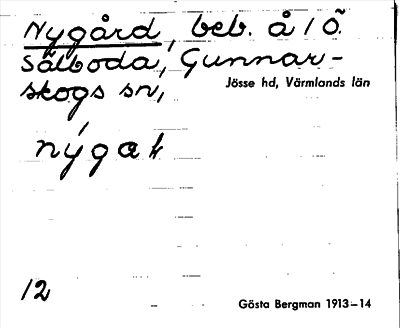 Nygård, beb. å 1 Ö.
Sälboda, Gunnar-
skogs sn,
Jösse hd, Värmlands län
12
Gösta Bergman 1913–14